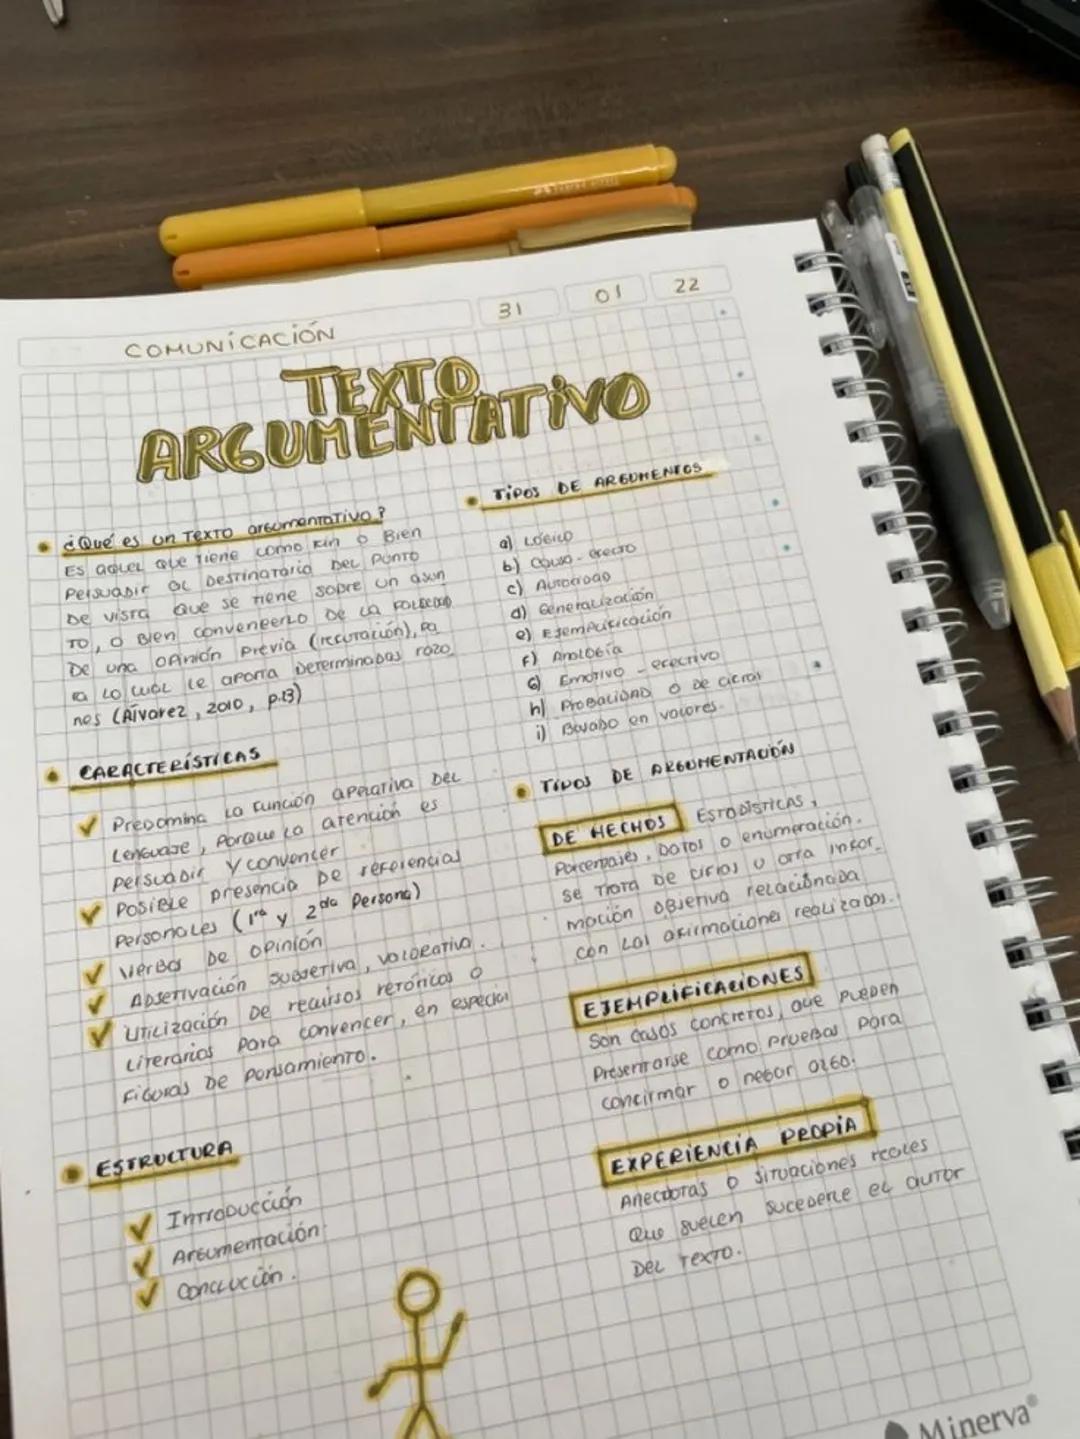 COMUNICACIÓN
31 01 22
TEXTO
ARGUMENTATIVO
¿Qué es un TEXTO argumentativo?
Es aquel que tiene como fin o Bien
Persuadir al Destinatario Del Punto
De vista que se tiene sobre un asun
TO, o Bien convencerlo De la Falsedad
De una opinión previa (refutación), pa
ra lo cual le aporta Determinadas razo
nes (Álvarez, 2010, p.13)
CARACTERÍSTICAS
Predomina la Función apelativa Del
Lenguaje, Porque la atención es
Persuadir y convencer
Posible presencia De referencias
Personales (1ra y 2da Persona)
Verbos De opinión
Adjetivación subjetiva, valorativa.
Utilización De recursos retóricos o
Literarios Para convencer, en especial
Figuras De Pensamiento.
ESTRUCTURA
Introducción
Argumentación
Conclución.
TIPOS DE ARGUMENTOS
a) Lógico
b) Causa-efecto
c) Autoridad
d) Generalización
e) Ejemplificación
F) Analogía
G) Emotivo - efectivo
h) Probalidad o De cifras
i) Basado en valores.
TIPOS DE ARGUMENTACIÓN
DE HECHOS Estadísticas,
Porcentajes, Datos o enumeración.
Se Trata De cifras u otra infor-
mación objetiva relacionada
con las afirmaciones realizadas.
EJEMPLIFICACIONES
Son casos concretos, que pueden
Presentarse como pruebas Para
confirmar o negar algo.
EXPERIENCIA PROPIA
Anécdotas o situaciones reales
Que suelen sucederle el autor
Del Texto.
Minerva®